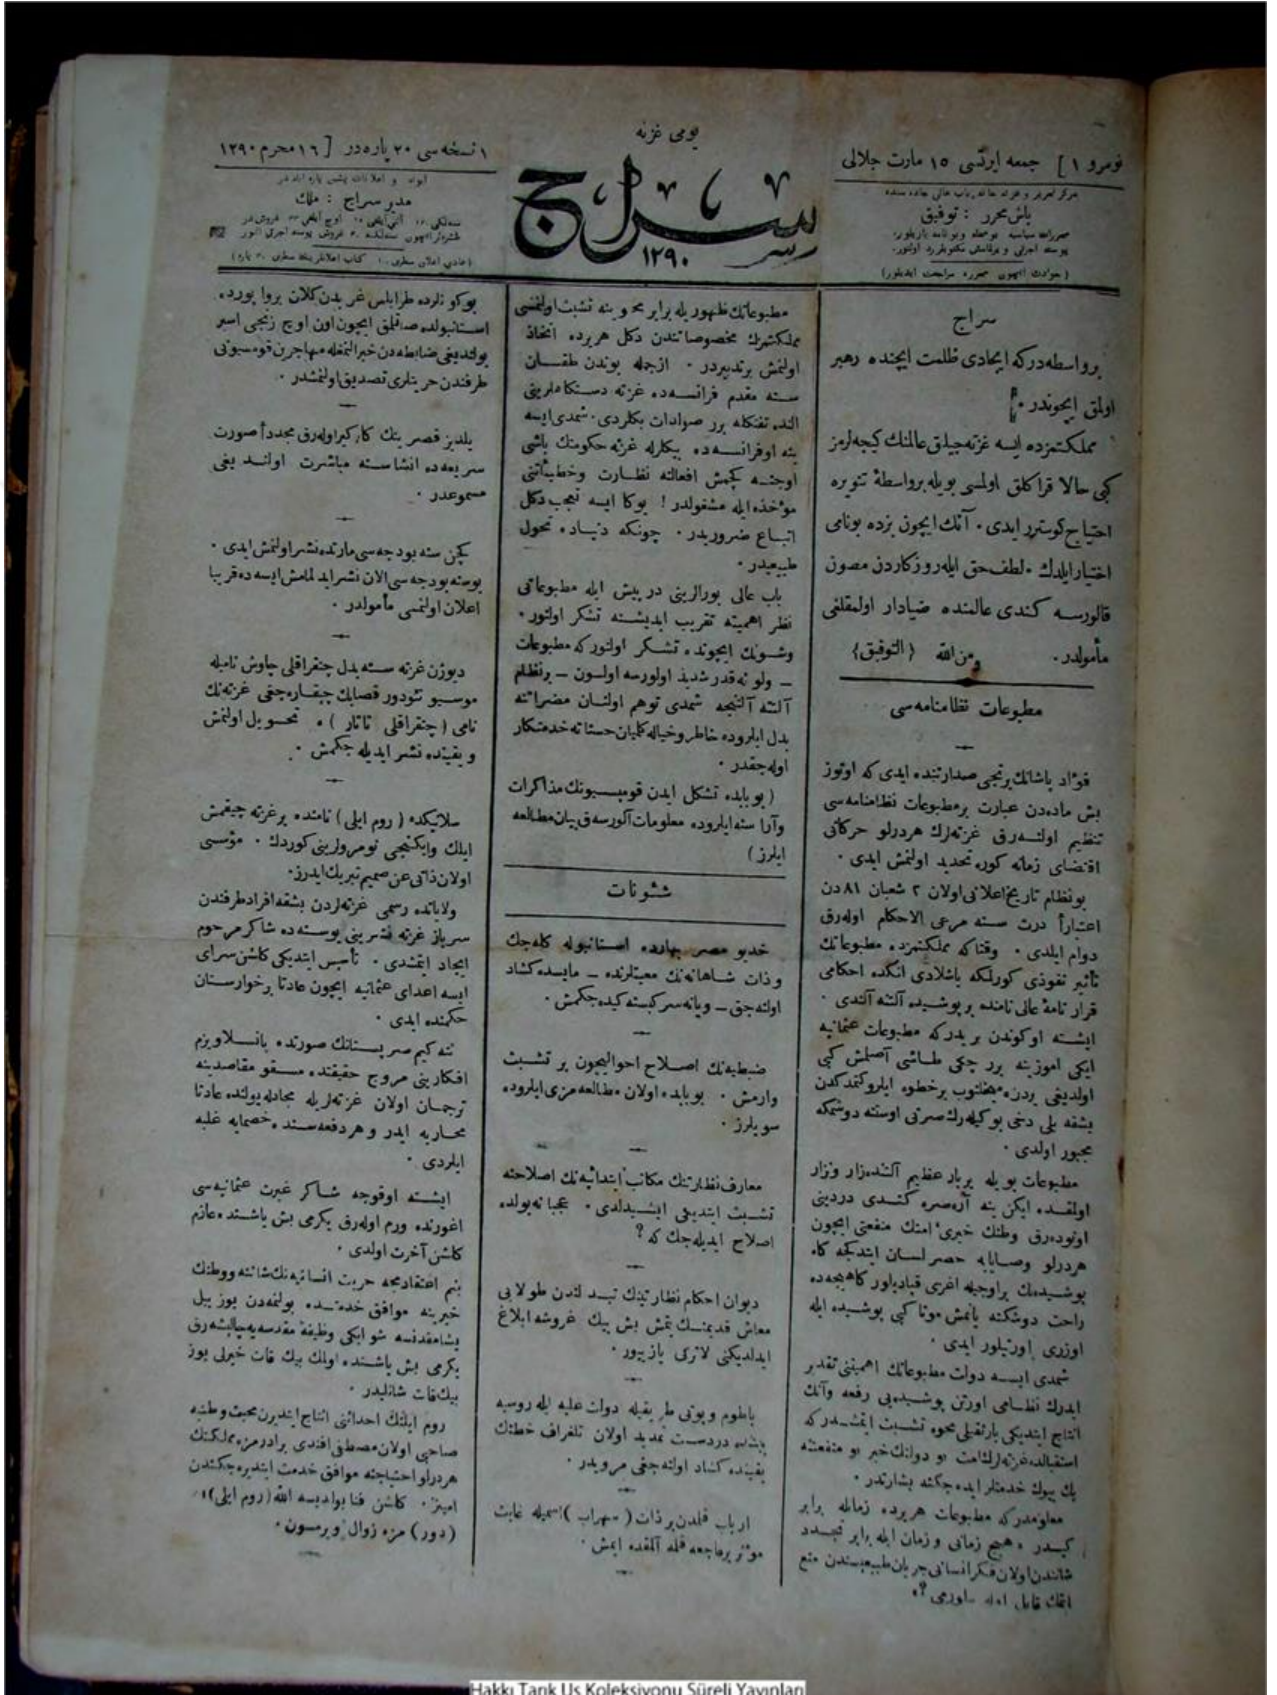 یومی غزته
نومرو ١ ] جمعه ایرتسی ١٥ مارت جلالی
سراج
١٢٩٠
١ نسخه سی ٢٠ پاره در [ ١٦ محرم ١٢٩٠
باش محرر : توفیق
مدیر سراج : ملك
سراج
برواسطه درکه ایجادی ظلمت ایچنده رهبر
اولمق ایچوندر .
مملکتمزده ایسه غزته جیلق عالمنك کیجه لرمز
کبی حالا قراکلق اولمسی بویله برواسطۀ تنویره
احتیاج کوسترر ایدی . آنك ایچون بزده بونامی
اختیار ایلدك . لطف حق ایله روزکاردن مصون
قالورسه کندی عالمنده ضیادار اولمقلغی
مأمولدر . ومن الله {التوفیق}
مطبوعات نظامنامه سی
فؤاد پاشانك برنجی صدارتنده ایدی که اوتوز
بش ماده دن عبارت برمطبوعات نظامنامه سی
تنظیم اولنه رق غزته لرك هردرلو حرکاتی
اقتضای زمانه کوره تحدید اولنمش ایدی .
بونظام تاریخ اعلانی اولان ٢ شعبان ٨١ دن
اعتباراً درت سنه مرعی الاحکام اوله رق
دوام ایلدی . وقتاکه مملکتمزده مطبوعاتك
تأثیر نفوذی کورلمکه باشلادی انکده احکامی
قرار نامۀ عالی نامنده برپوشیده آلتنه آلندی .
ایشته اوکوندن بریدرکه مطبوعات عثمانیه
ایکی اموزینه برر چکی طاشی آصلمش کبی
اولدیغی یردن
بشقه بلی دخی بوکیله رك صرتی اوستنه دوشمکه
مجبور اولدی .
مطبوعات بویله بربار عظیم آلتنده زار ونزار
اولقده ایکن ینه آره صره کندی دردینی
اونوده رق وطنك خیری امتك منفعتی ایچون
هردرلو وصایایه حصر لسان ایتدکجه کاه
پوشیده نك براوجیله اغزی قپادیلور کاه پنجه ده
راحت دوشکنه یاتمش موتا کبی پوشیده ایله
اوزری اورتیلور ایدی .
شمدی ایسه دولت مطبوعاتك اهمیتنی تقدیر
ایدرك نظامی اورتن پوشیده یی رفعه وآنك
انتاج ایتدیکی بارثقیلی محوه تشبث ایتمشدرکه
استقبالده غزته لرك امت و دولتك خیر و منفعتنه
پك بیوك خدمتلر ایده جکنه بشارتدر .
معلومدرکه مطبوعات هریرده زمانله برابر
کیدر . هیچ زمانی وزمان ایله برابر تجدد
شانندن اولان فکر انسانی جریان طبیعیسندن منع
ایتمك قابل اوله بیلورمی ؟.
مطبوعاتك ظهوریله برابر محوینه تشبث اولنمسی
مملکتمزك مخصوصاتندن دکل هریرده اتخاذ
اولنمش برتدبیردر . ازجمله بوندن طقسان
سنه مقدم فرانسه ده غزته دستکاهلرینی
النده تفنکله برر صولدات بکلردی . شمدی ایسه
ینه اوفرانسه ده بیکلرله غزته حکومتك باشی
اوجنه کچمش افعالنه نظارت وخطیئاتنی
مؤاخذه ایله مشغولدر ! بوکا ایسه تعجب دکل
اتباع ضروریدر . چونکه دنیاده تحول
طبیعیدر .
باب عالی بورالرینی درپیش ایله مطبوعاتی
نظر اهمیته تقریب ایدیشنه تشکر اولنور .
وشونك ایچونده تشکر اولنورکه مطبوعات
ـ ولو نه قدر شدید اولورسه اولسون ـ برنظام
آلتنه آلنیجه شمدی توهم اولنان مضراتنه
بدل ایلروده خاطر وخیاله کلمیان حسناته خدمتکار
اوله جقدر .
( بوبابده تشکل ایدن قومیسیونك مذاکرات
وآراسنه ایلروده معلومات آلورسه ق بیان مطالعه
ایلرز )
شئونات
خدیو مصر بهارده استانبوله کله جك
وذات شاهانه نك معیتلرنده ـ مایسده کشاد
اولنه جق ـ ویانه سرکیسنه کیده جکمش .
ضبطیه نك اصلاح احوالیچون بر تشبث
وارمش . بوبابده اولان مطالعه مزی ایلروده
سویلرز .
معارف نظارتنك مکاتب ابتدائیه نك اصلاحنه
تشبث ایتدیکی ایشیدلدی . عجبا نه یولده
اصلاح ایدیله جك که ؟
دیوان احکام نظارتینك تبدلندن طولایی
معاش قدیمنك یتمش بش بیك غروشه ابلاغ
ایدلدیکنی لاترکی یازییور .
باطوم وپوتی طریقیله دولت علیه ایله روسیه
بیننده دردست تمدید اولان تلغراف خطنك
یقینده کشاد اولنه جغی مرویدر .
ارباب قلمدن برذات ( سهراب ) اسمیله غایت
مؤثر برفاجعه قلمه آلمقده ایمش .
بوکونلرده طرابلس غربدن کلان بروا پورده
استانبولده صاتلمق ایچون اون اوچ زنجی اسیر
بولندیغی ضابطه دن خبر النمغله مهاجرین قومسیونی
طرفندن حریتلری تصدیق اولنمشدر .
یلدیز قصرینك کارکیر اوله رق مجدداً صورت
سریعه ده انشاسنه مباشرت اولندیغی
مسموعدر .
کچن سنه بودجه سی مارتده نشر اولنمش ایدی .
بوسنه بودجه سی الان نشر ایدلمامش ایسه ده قریبا
اعلان اولنمسی مأمولدر .
دیوژن غزته سنه بدل چنغراقلی چاوش نامیله
موسیو تئودور قصابك چیقاره جغی غزته نك
نامی ( چنغراقلی تاتار ) ه تحویل اولنمش
ویقینده نشر ایدیله جکمش .
سلانیکده ( روم ایلی ) نامنده برغزته چیقمش
ایلك وایکنجی نومرولرینی کوردك . مؤسسی
اولان ذاتی عن صمیم تبریك ایدرز .
ولایاتده رسمی غزته لردن بشقه افراد طرفندن
سرباز غزته نشرینی بوسنه ده شاکر مرحوم
ایجاد ایتمشدی . تأسیس ایتدیکی کلشن سرای
ایسه اعدای عثمانیه ایچون عادتا برخارستان
حکمنده ایدی .
نته کیم صربستانك صورتده پانسلاویزم
افکارینی مروج حقیقتده مسقو مقاصدینه
ترجمان اولان غزته لریله مجادله یولنده عادتا
محاربه ایدر وهردفعه سنده خصمایه غلبه
ایلردی .
ایشته اوقوجه شاکر غیرت عثمانیه سی
اغورنده ورم اوله رق یکرمی بش یاشنده عازم
کلشن آخرت اولدی .
بنم اعتقادمجه حریت انسانیه نك شاننه ووطنك
خیرینه موافق خدمتده بولنمه دن یوز ییل
یشامقدنسه شو ایکی وظیفۀ مقدسه یه چالیشه رق
یکرمی بش یاشنده اولمك بیك قات خیرلی یوز
بیك قات شانلیدر .
روم ایلینك احداثنی انتاج ایتدیرن محبت وطنیه
صاحبی اولان مصطفی افندی برادرمزه مملکتنك
هردرلو احتیاجنه موافق خدمت ایتدیره جکندن
امینز . کلشن فنا بولدیسه الله (روم ایلی) !
(دور) مزه زوال ویرمسون .
Hakkı Tarık Us Koleksiyonu Süreli Yayınları